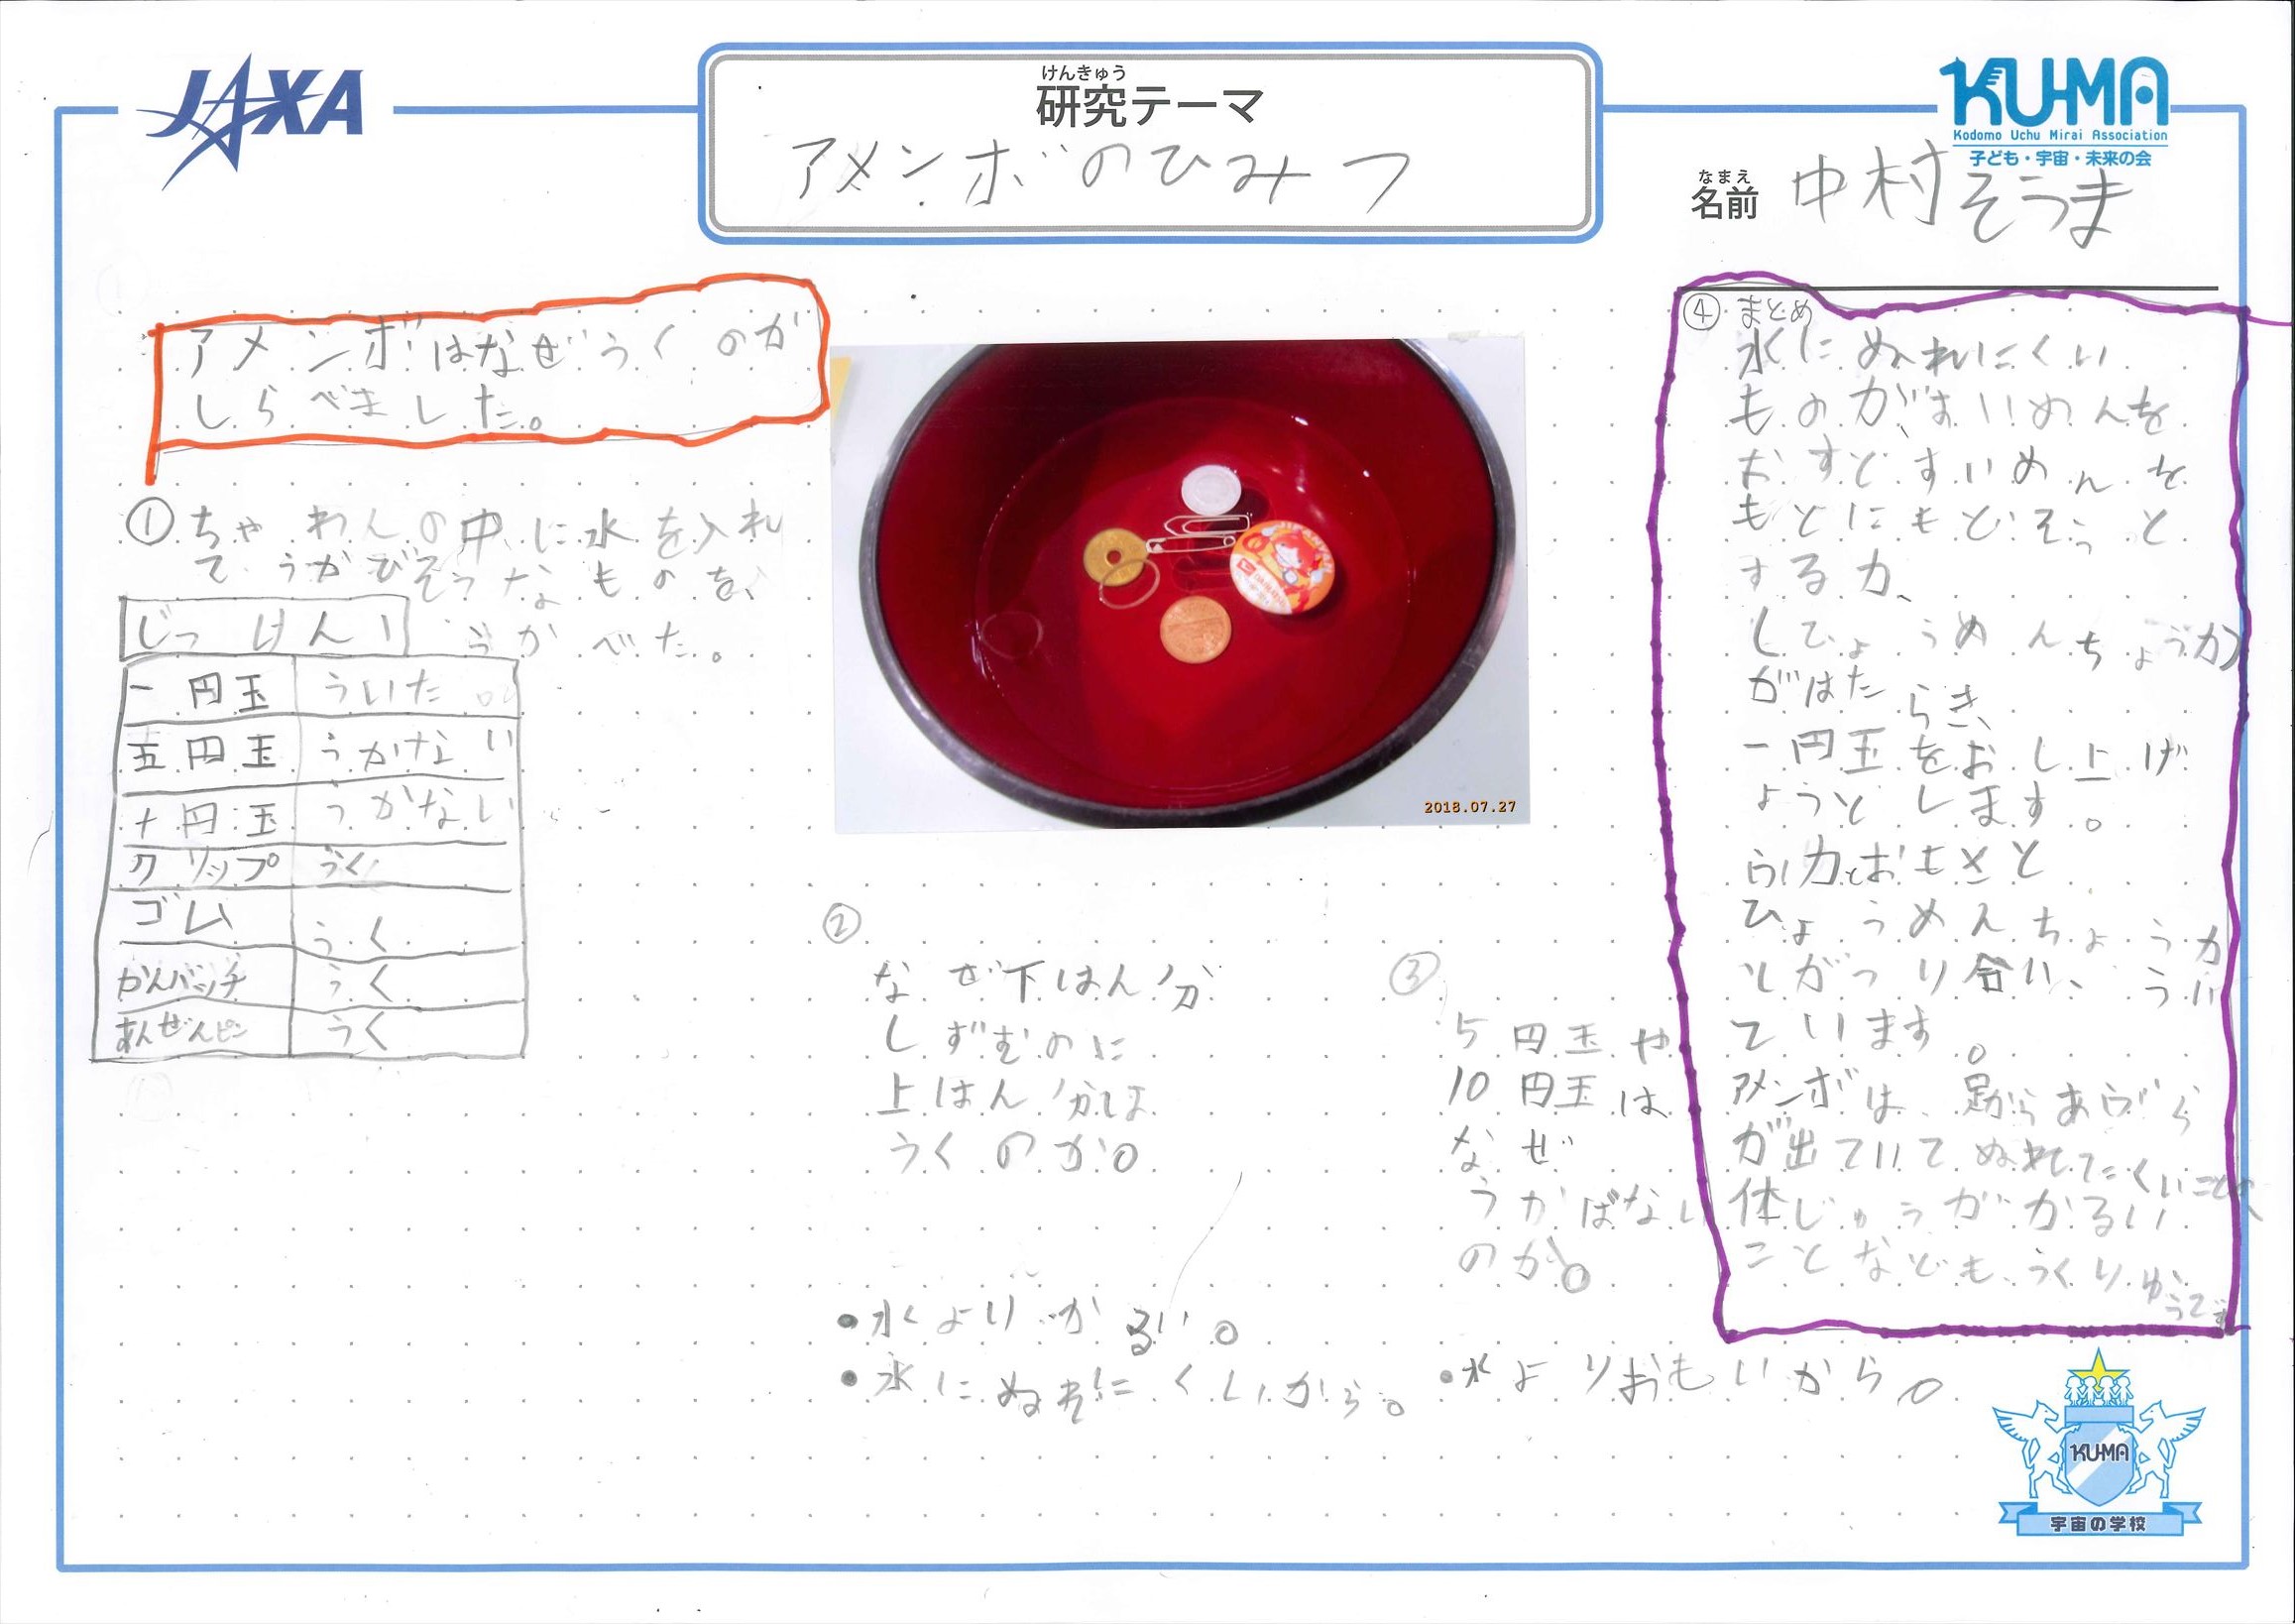 JAXA
けんきゅう
研究テーマ
アメンボのひみつ
KU-MA
Kodomo Uchu Mirai Association
子ども・宇宙・未来の会
なまえ
名前 中村そうま
アメンボはなぜうくのか
しらべました。
① ちゃわんの中に水を入れ
て、うかびそうなものを、
うかべた。
じっけん1
一円玉 ういた
五円玉 うかない
十円玉 うかない
クリップ うく
ゴム うく
かんバッチ うく
あんぜんピン うく
2018.07.27
②
なぜ下はん分
しずむのに
上はん分は
うくのか。
・水よりかるい。
・水にぬれにくいから。
③
5円玉や
10円玉は
なぜ
うかばない
のか。
・水よりおもいから。
④ まとめ
水にぬれにくい
ものがすいめんを
おすとすいめんを
もとにもどそうと
する力、
しひょうめんちょう力)
がはたらき、
一円玉をおし上げ
ようとします。
ふ力とおもさと
ひょうめんちょう力
しがつり合い、うい
ています。
アメンボは、足からあぶら
が出ていてぬれてにくいことや
体じゅうがかるい
ことなども、うくりゆうです
KU-MA
宇宙の学校